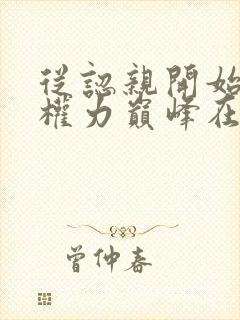 從認親開始
權力巔峰在
曾仲春